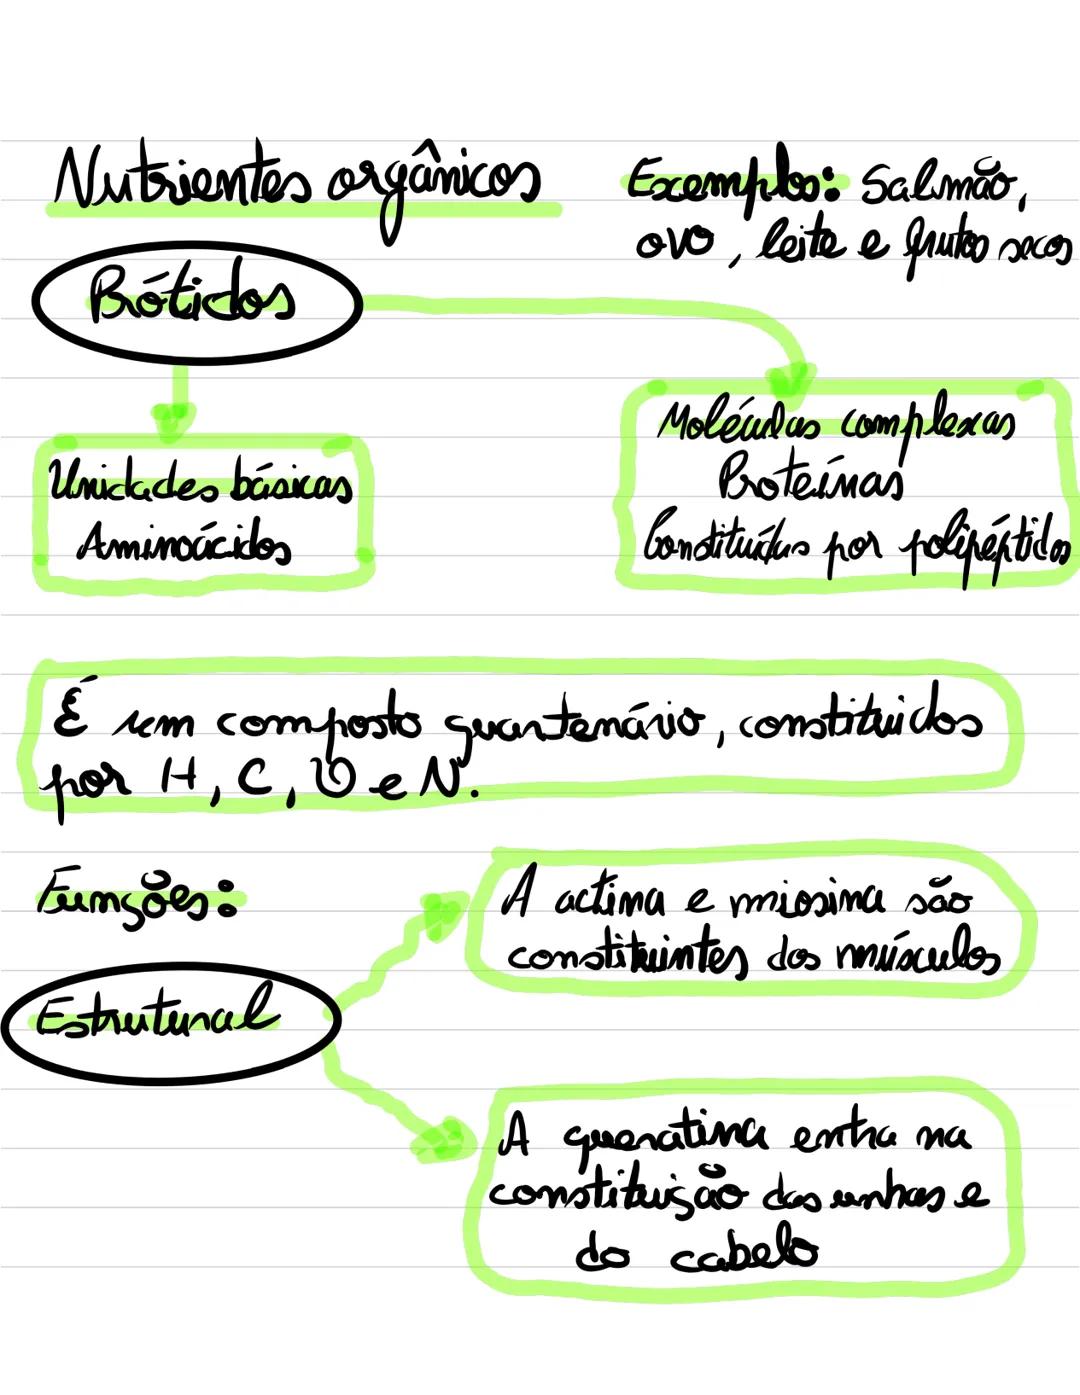 Nutrientes orgânicos
Exemplos: Salmão,
ovo, leite e frutos secos
Prótidos
Moléculas complexas
Proteínas
Constituídas por polipéptidos
Unidades básicas
Aminoácidos
É um composto quartenário, constituidos
por H, C, O e N.
Funções:
A actina e miosina são
constituintes dos músculos
Estrutural
A queratina entra na
constituição das unhas e
do cabelo